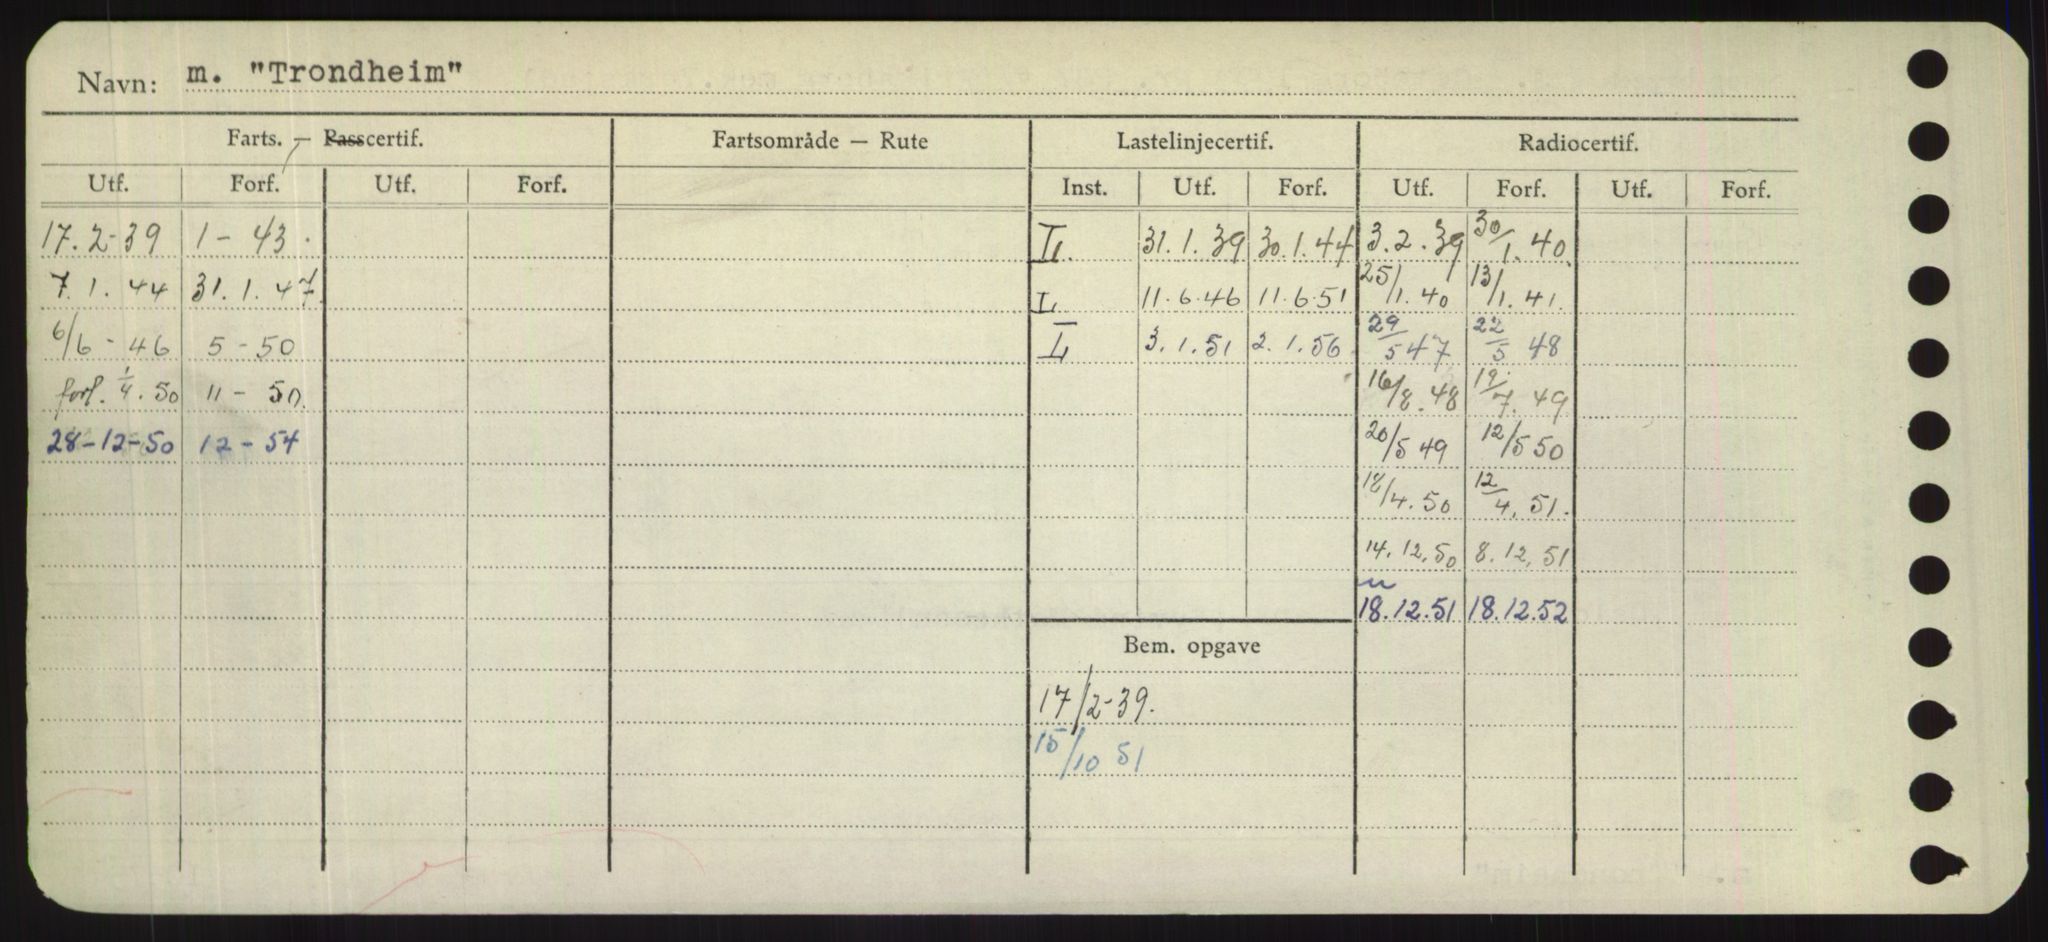 Navn: m. "Trondheim"
Farts. — Passcertif. Fartsområde — Rute Lastelinjecertif. Radiocertif.
Utf. Forf. Utf. Forf. Inst. Utf. Forf. Utf. Forf. Utf. Forf.
17.2-39 1-43. L. 31.1.39 30.1.44 3.2.39 30/1.40.
7.1.44 31.1.47. L 11.6.46 11.6.51 25/1.40 13/1.41.
6/6-46 5-50 L 3.1.51 2.1.56 29/5 47 22/5 48
forl. 1/4.50 11-50. 16/8.48 19/7.49
28-12-50 12-54 20/5 49 12/5 50
18/4.50 12/4.51.
14.12.50 8.12.51
18.12.51 18.12.52
Bem. opgave
17/2-39.
15/10 51